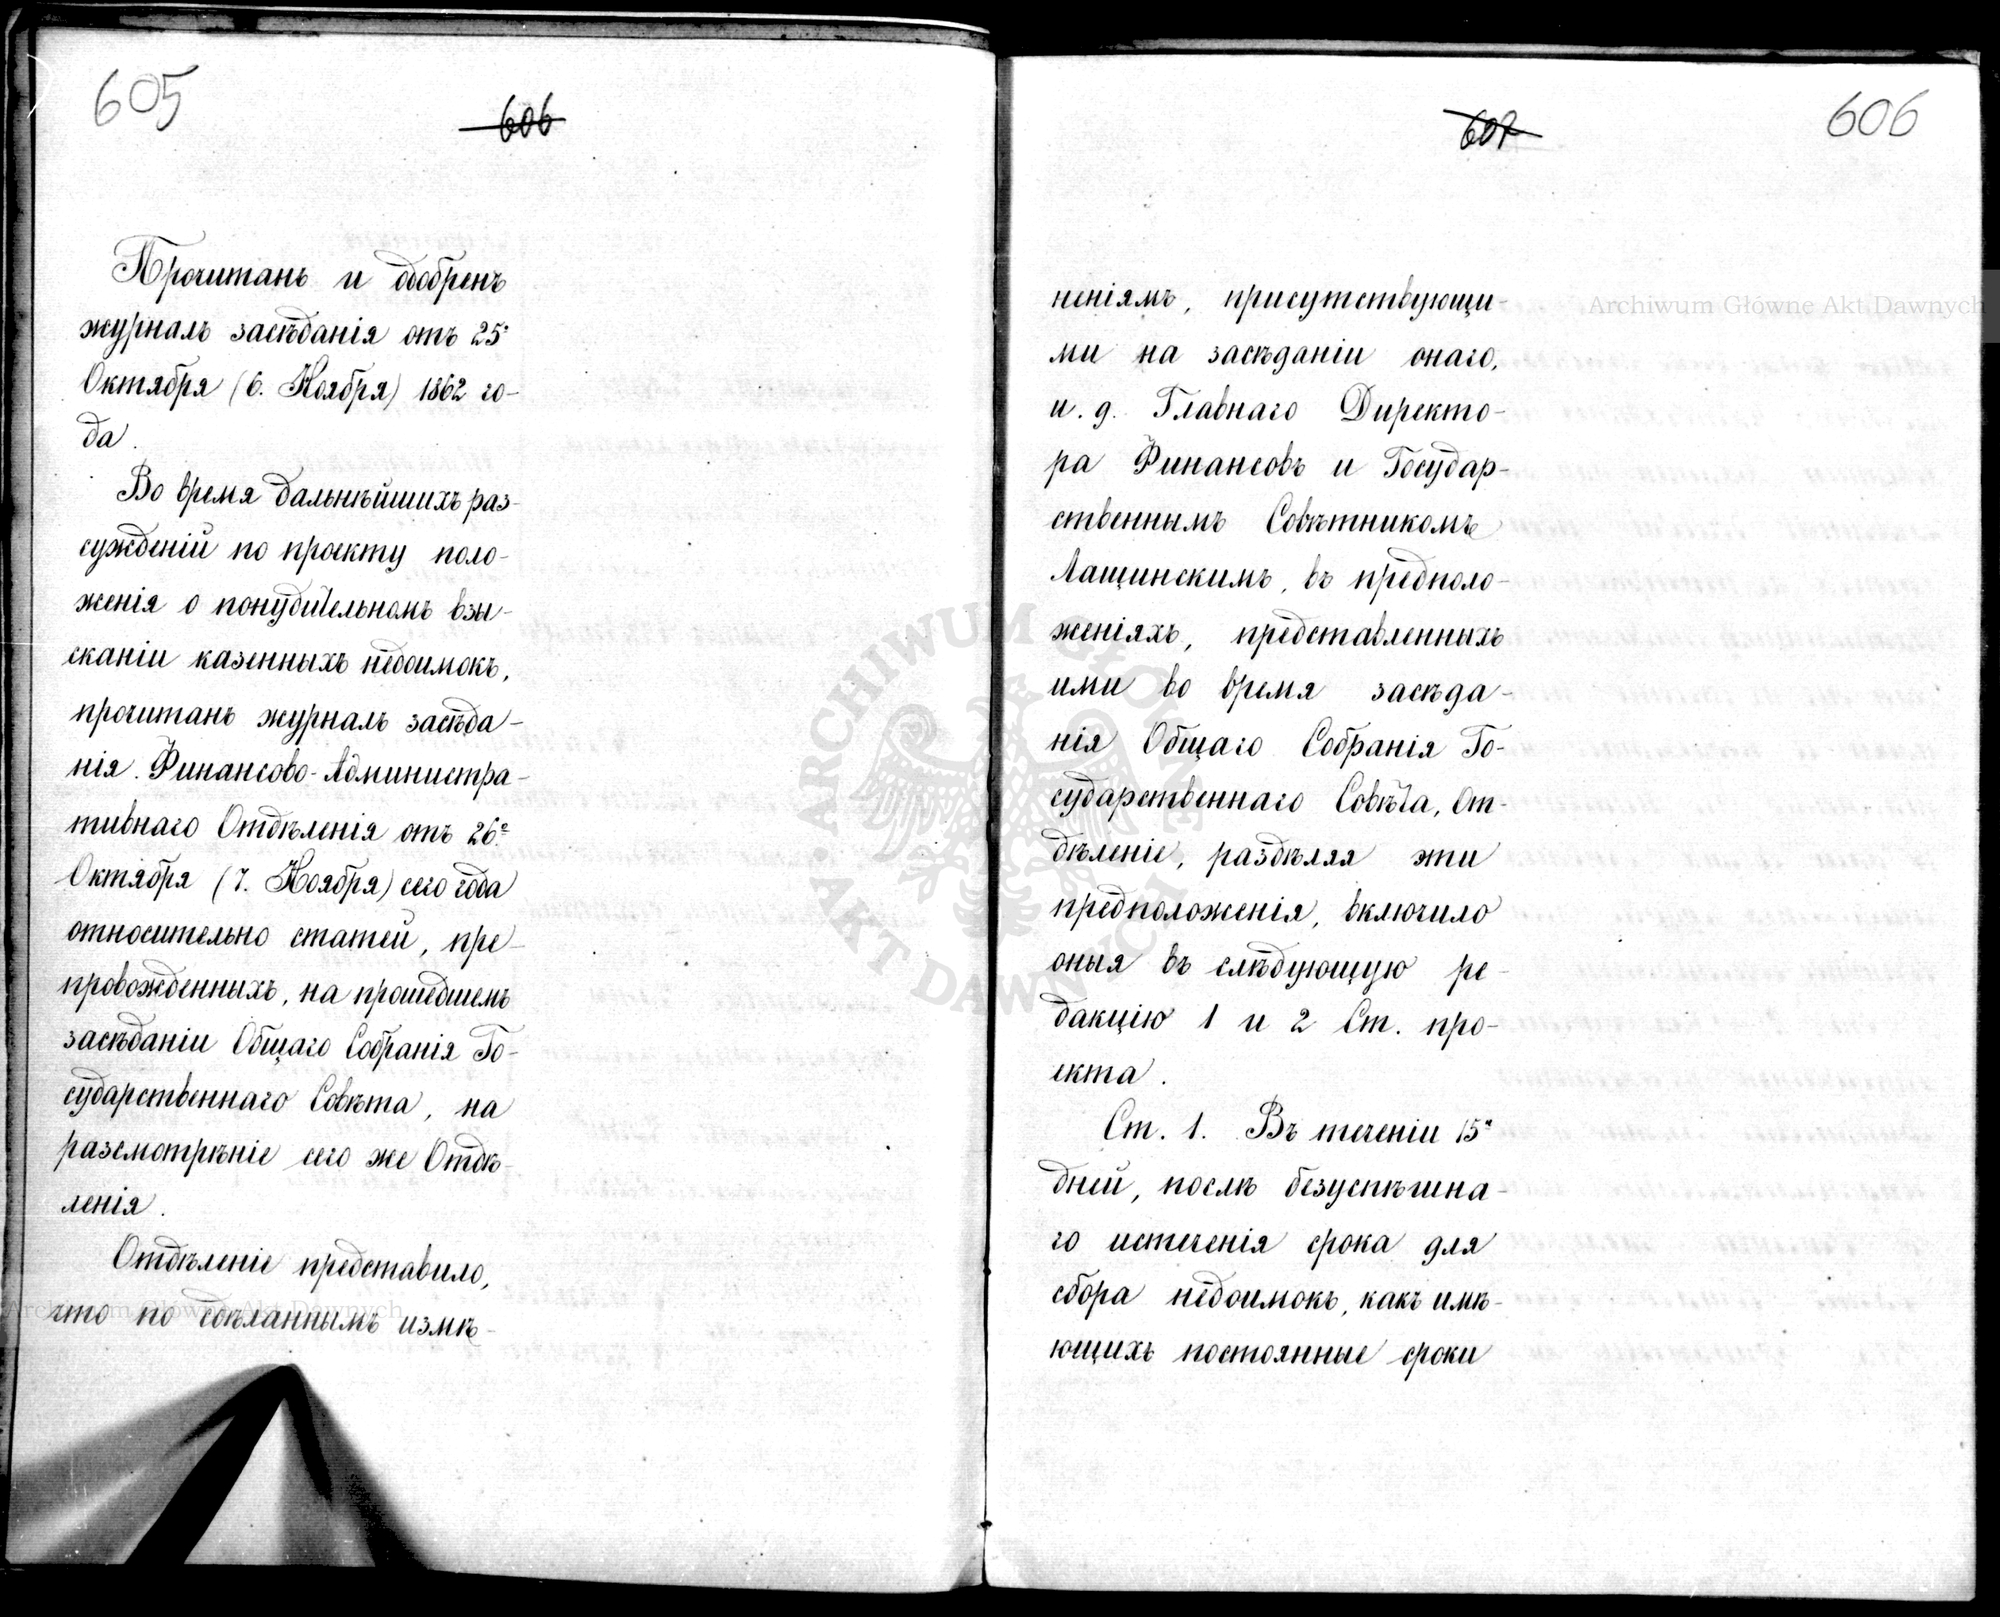 605
606
Прочитанъ и одобренъ
журналъ засѣданія отъ 25го
Октября (6. Ноября) 1862 го-
да.
Во время дальнѣйшихъ раз-
сужденій по проекту поло-
женія о понудительномъ взы-
сканіи казенныхъ недоимокъ,
прочитанъ журналъ засѣда-
нія Финансово-Администра-
тивнаго Отдѣленія отъ 26го
Октября (7. Ноября) сего года
относительно статей, пре-
провожденныхъ, на прошедшемъ
засѣданіи Общаго Собранія Го-
сударственнаго Совѣта, на
разсмотрѣніе сего же Отдѣ-
ленія.
Отдѣленіе представило,
что по сдѣланнымъ измѣ-
Archiwum Główne Akt Dawnych
607
606
неніямъ, присутствующи-
ми на засѣданіи онаго,
и. д. Главнаго Директо-
ра Финансовъ и Государ-
ственнымъ Совѣтникомъ
Лащинскимъ, въ предполо-
женіяхъ, представленныхъ
ими во время засѣда-
нія Общаго Собранія Го-
сударственнаго Совѣта, От-
дѣленіе, раздѣляя эти
предположенія, включило
оныя въ слѣдующую ре-
дакцію 1 и 2 Ст. про-
екта.
Ст. 1. Въ теченіи 15и
дней, послѣ безуспѣшна-
го истеченія срока для
сбора недоимокъ, какъ имѣ-
ющихъ постоянные сроки
Archiwum Główne Akt Dawnych
ARCHIWUM GŁÓWNE
AKT DAWNYCH